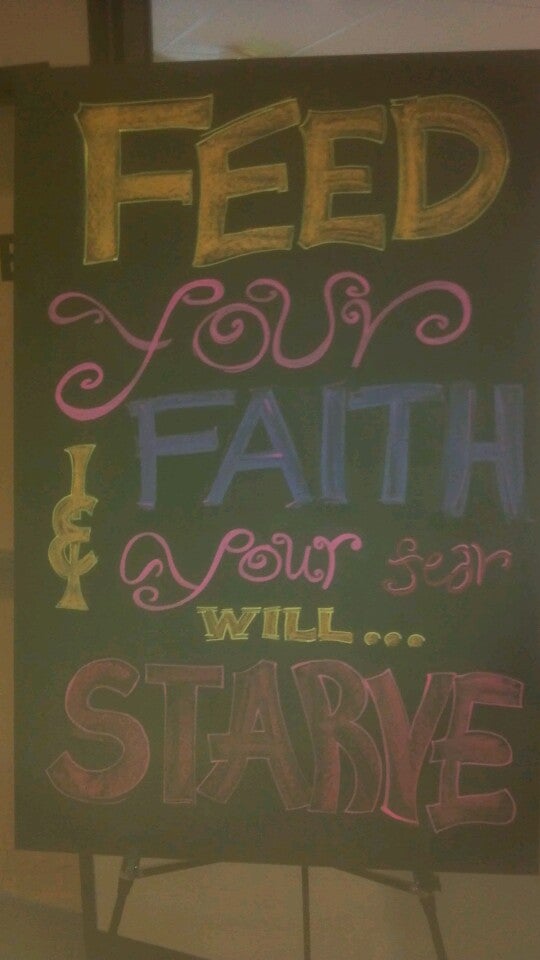 FEED
your
FAITH
& your fear
WILL...
STARVE